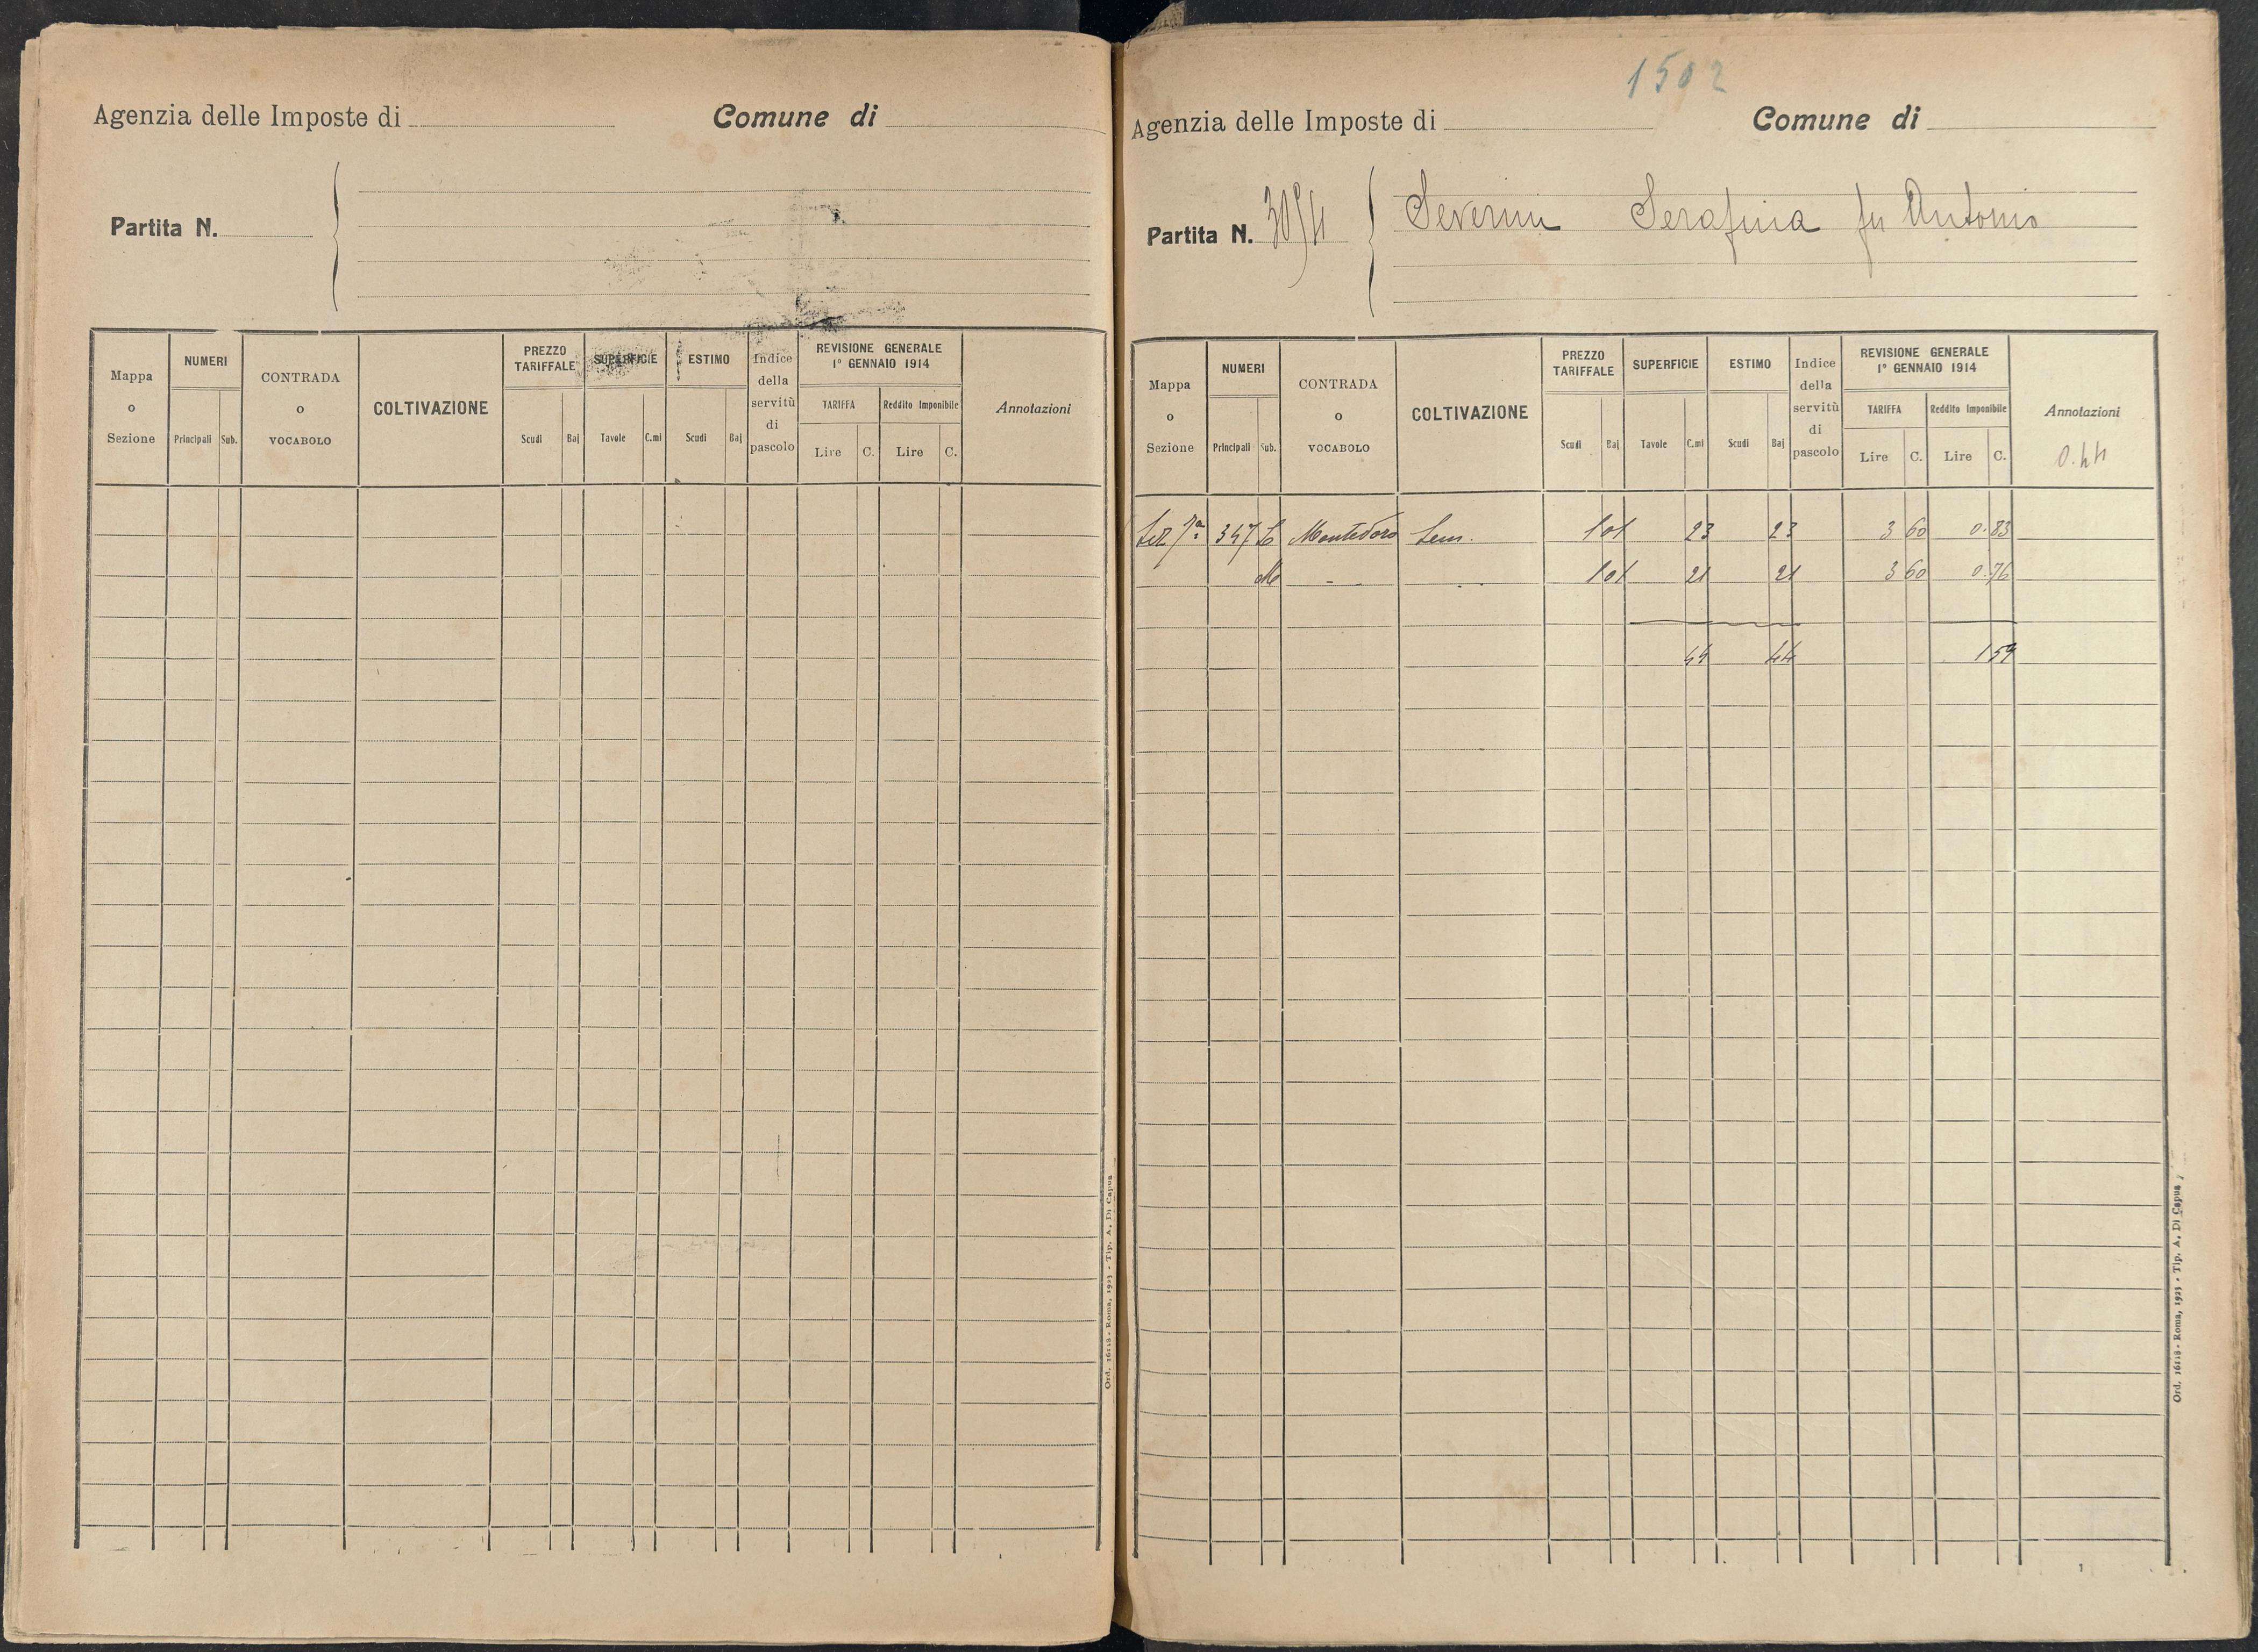 Agenzia delle Imposte di Comune di
Partita N.
Mappa o Sezione NUMERI Principali Sub. CONTRADA o VOCABOLO COLTIVAZIONE PREZZO TARIFFALE Scudi Baj SUPERFICIE Tavole C.mi ESTIMO Scudi Baj Indice della servitù di pascolo REVISIONE GENERALE 1° GENNAIO 1914 TARIFFA Lire C. Reddito Imponibile Lire C. Annotazioni
Ord. 16118 - Roma, 1923 - Tip. A. Di Capua
1502
Agenzia delle Imposte di Comune di
Partita N. Severini Serafina fu Antonio
Mappa o Sezione NUMERI Principali Sub. CONTRADA o VOCABOLO COLTIVAZIONE PREZZO TARIFFALE Scudi Baj SUPERFICIE Tavole C.mi ESTIMO Scudi Baj Indice della servitù di pascolo REVISIONE GENERALE 1° GENNAIO 1914 TARIFFA Lire C. Reddito Imponibile Lire C. Annotazioni
0.44
Sez 7ª 347 L Montedoro Sem. 101 23 23 3 60 0.83
M - 101 21 21 3 60 0.76
44 44 1 59
Ord. 16118 - Roma, 1923 - Tip. A. Di Capua